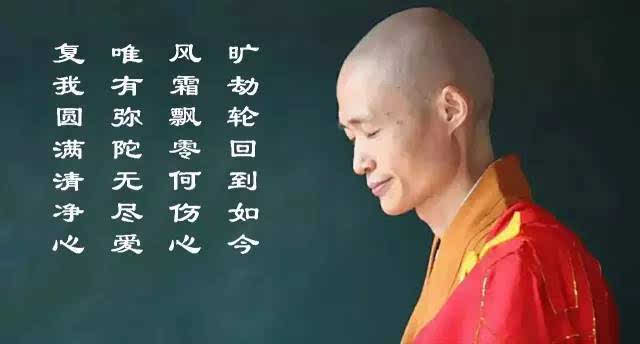 旷劫轮回到如今
风霜飘零何伤心
唯有弥陀无尽爱
复我圆满清净心